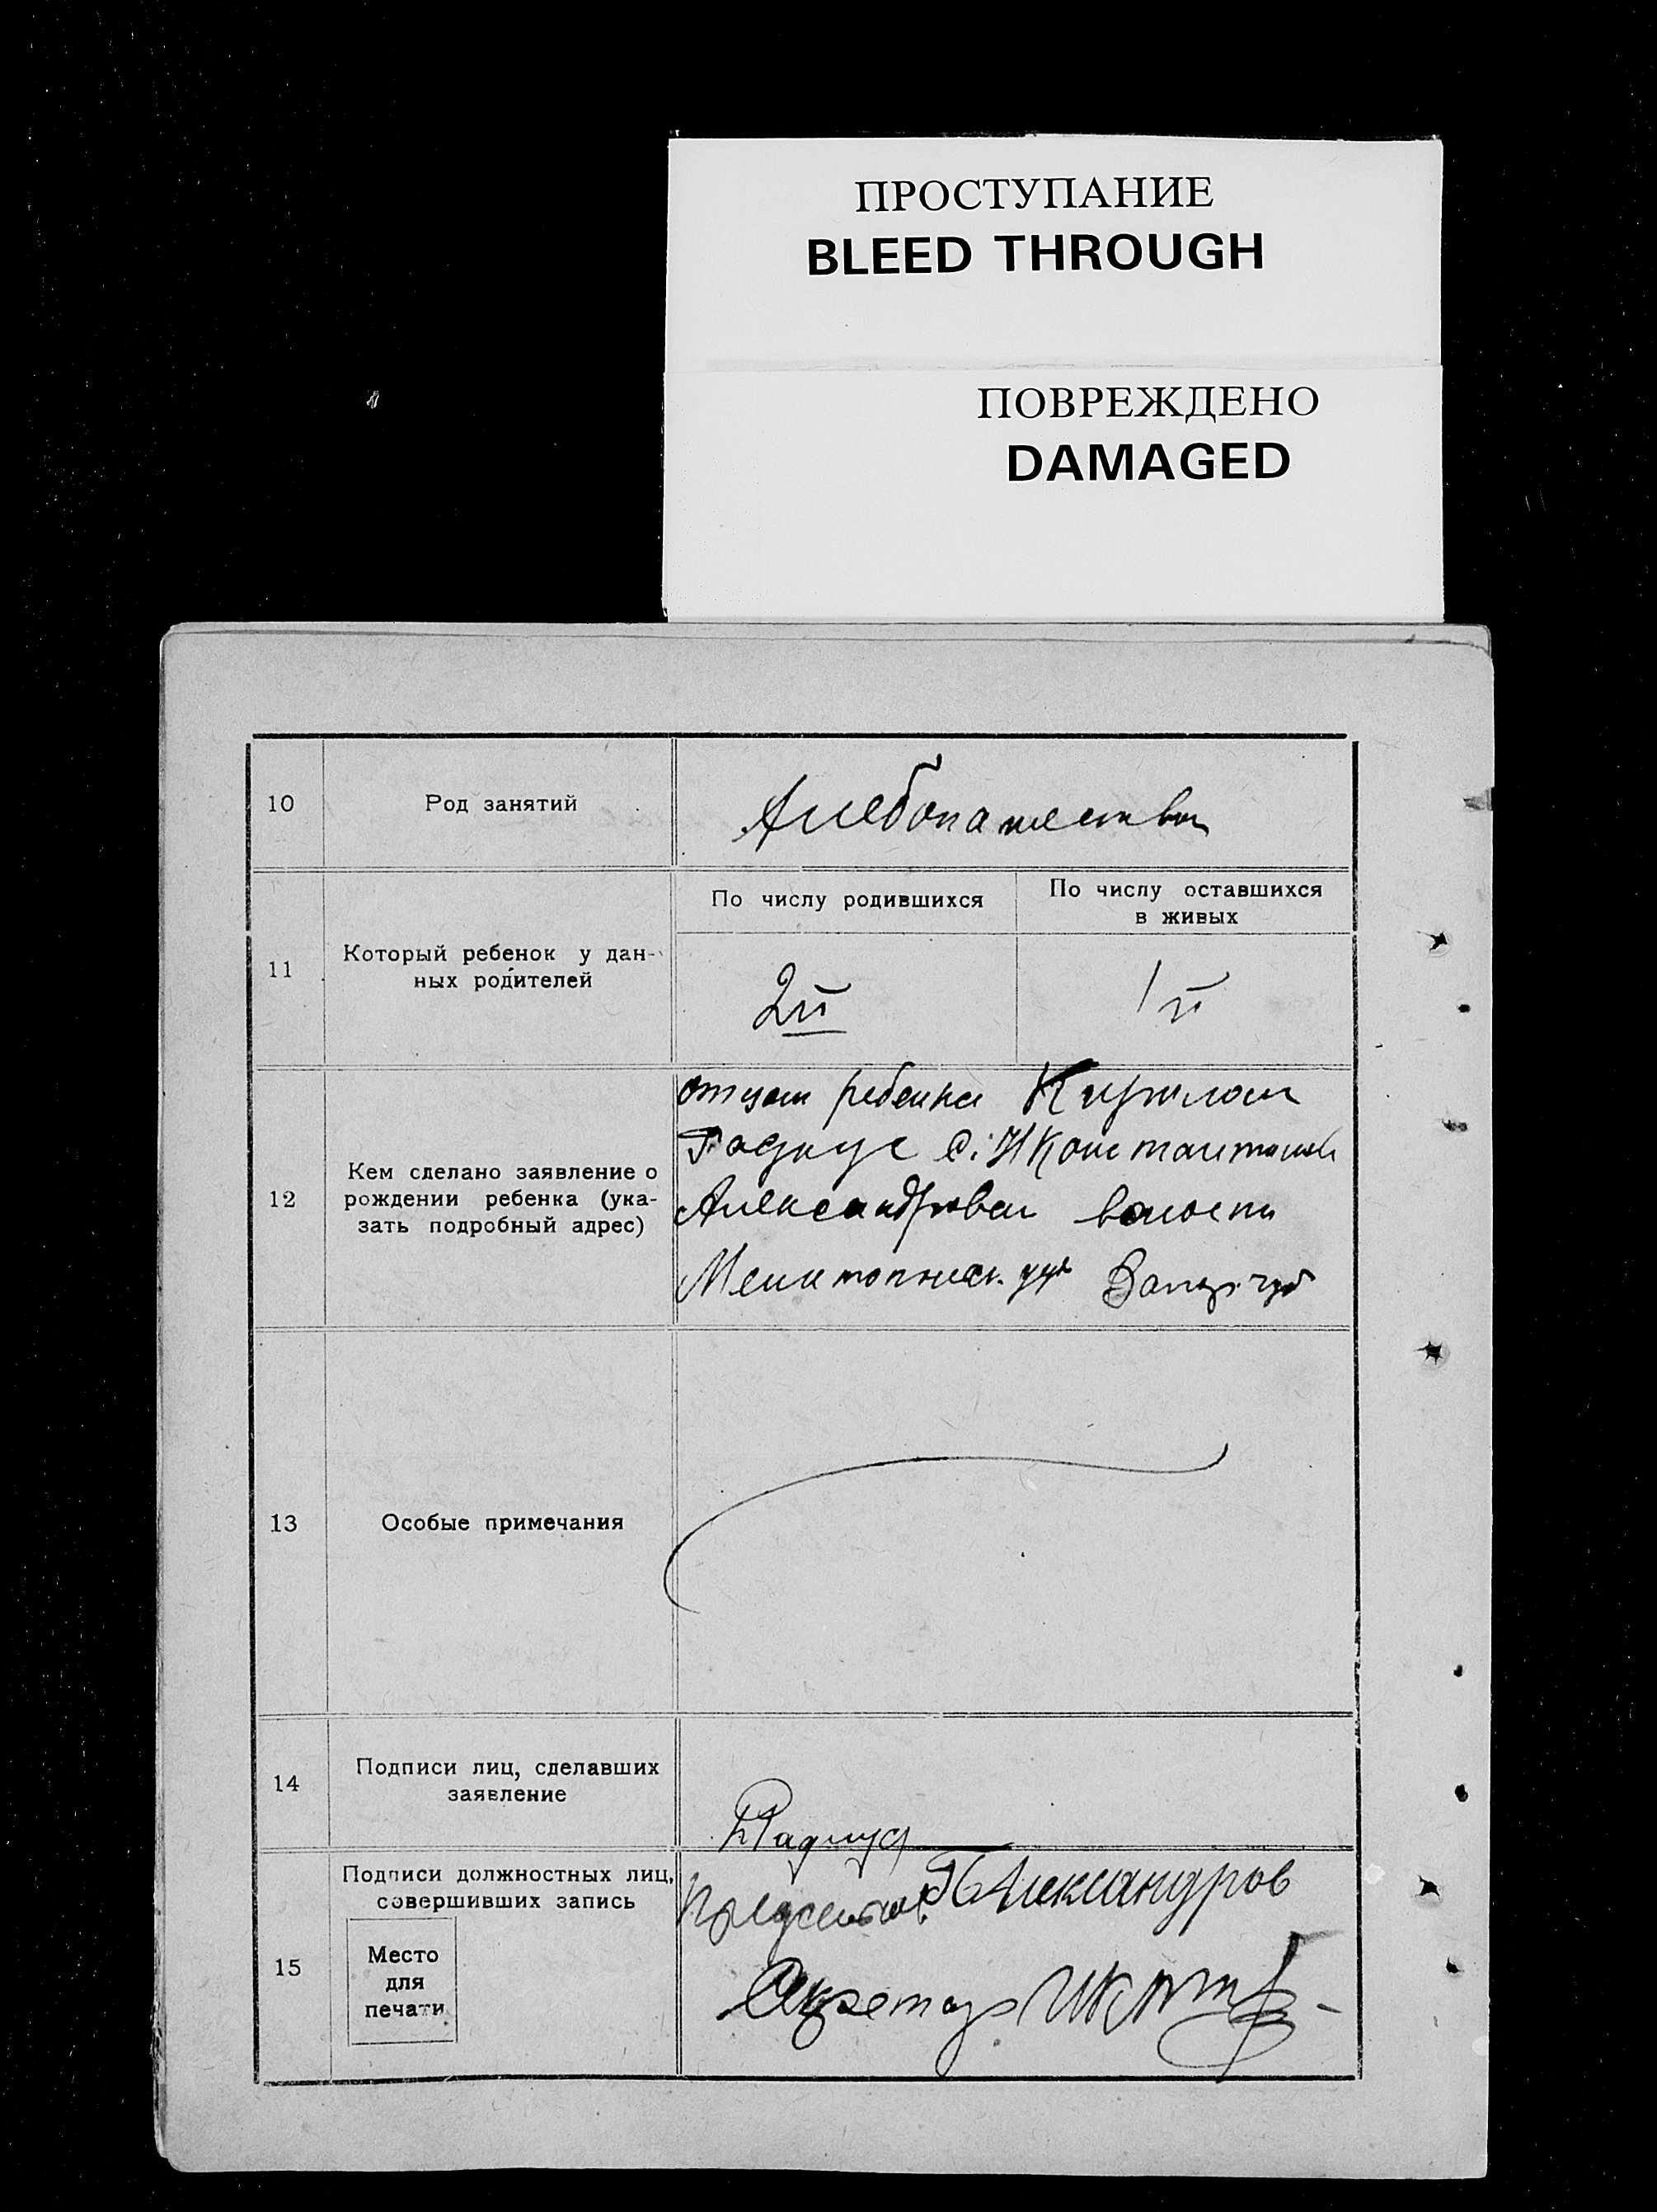 ПРОСТУПАНИЕ
BLEED THROUGH
ПОВРЕЖДЕНО
DAMAGED
10
Род занятий
Хлебопашество
11
Который ребенок у дан-
ных родителей
По числу родившихся
2й
По числу оставшихся
в живых
1й
12
Кем сделано заявление о
рождении ребенка (ука-
зать подробный адрес)
отцом ребенка Кирилом
с. Н Константиновк
Александровск волости
Мелитопольск. уез Запор. губ
13
Особые примечания
14
Подписи лиц, сделавших
заявление
15
Подписи должностных лиц,
совершивших запись
Место
для
печати
Александров
Секретарь